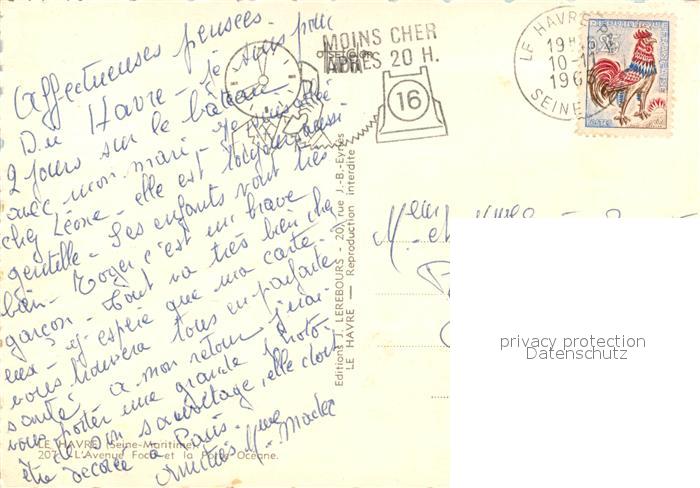 Affectueuses pensées.
Du Havre - je suis pour
2 jours sur le bateau
avec mon mari - je suis
chez Léone - elle est toujours aussi
gentille - Les enfants vont très
bien - Roger c'est un brave
garçon - tout va très bien chez
eux - j'espère que ma carte
vous trouvera tous en parfaite
santé - à mon retour j'irai
vous porter une grande photo
de son sauvetage, elle doit
être décorée à Paris.
Amitiés Mme Madec
MOINS CHER
APRÈS 20 H.
16
LE HAVRE
10-11
196
SEINE
Editions J. LEREBOURS - 20, rue J.-B.-Eyriès
LE HAVRE — Reproduction interdite
M. et Mme
privacy protection
Datenschutz
LE HAVRE (Seine-Maritime)
207 - L'Avenue Foch et la Porte Océane.